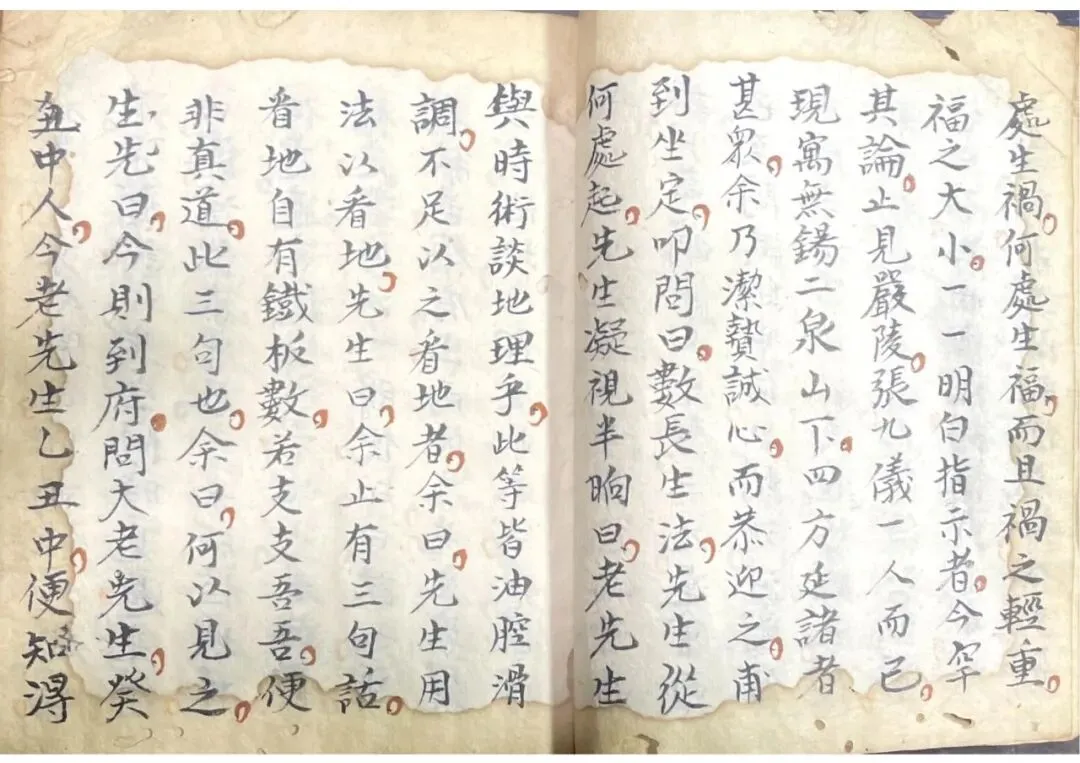 處生禍。何處生福。而且禍之輕重。
福之大小。一一明白指示者。今罕
其論。止見嚴陵。張九儀一人而已。
現寓無錫二泉山下。四方延諸者
甚衆。余乃潔贄誠心。而恭迎之。甫
到坐定。叩問曰。數長生法。先生從
何處起。先生凝視半晌曰。老先生
與時術談地理乎。此等皆油腔滑
調。不足以之看地者。余曰。先生用
法以看地。先生曰。余止有三句話。
看地自有鐵板數。若支支吾吾。便
非真道。此三句也。余曰。何以見之。
生先曰。今則到府。問大老先生。癸
丑中人。今老先生乙丑中。便知得